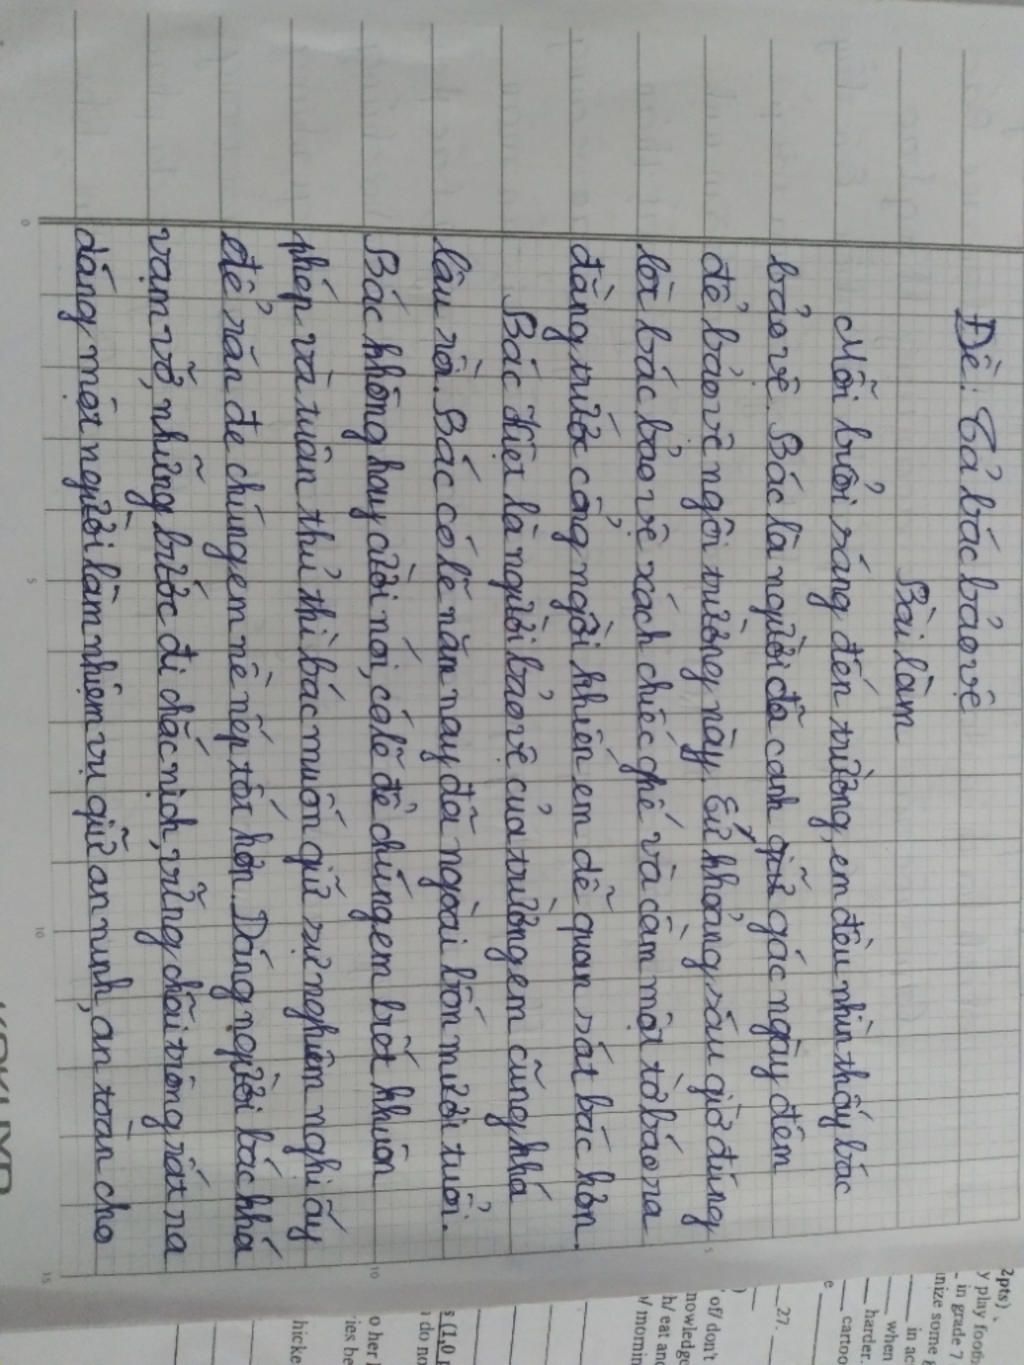 Đề: Tả bác bảo vệ
Bài làm
Mỗi buổi sáng đến trường, em đều nhìn thấy bác
bảo vệ. Bác là người đã canh giữ gác ngày đêm
để bảo vệ ngôi trường này. Cứ khoảng sáu giờ đúng
là bác bảo vệ xách chiếc ghế và cầm một tờ báo ra
đằng trước cổng ngồi khiến em dễ quan sát bác hơn.
Bác Việt là người bảo vệ của trường em cũng khá
lâu rồi. Bác có lẽ năm nay đã ngoài bốn mươi tuổi.
Bác không hay cười nói, có lẽ để chúng em biết khuôn
phép và tuân thủ thì bác muốn giữ sự nghiêm nghị ấy
để răn đe chúng em nề nếp tốt hơn. Dáng người bác khá
vạm vỡ, những bước đi chắc nịch, vững chãi trông rất ra
dáng một người làm nhiệm vụ giữ an ninh, an toàn cho
2pts)
y play footb
in grade 7
nize some
in ac
when
harder.
cartoo
e
27.
off/ don't
nowledge
h/ eat and
/ mornin
(1.0
do no
o her
ries be
hicke
0
5
10
15
5
10